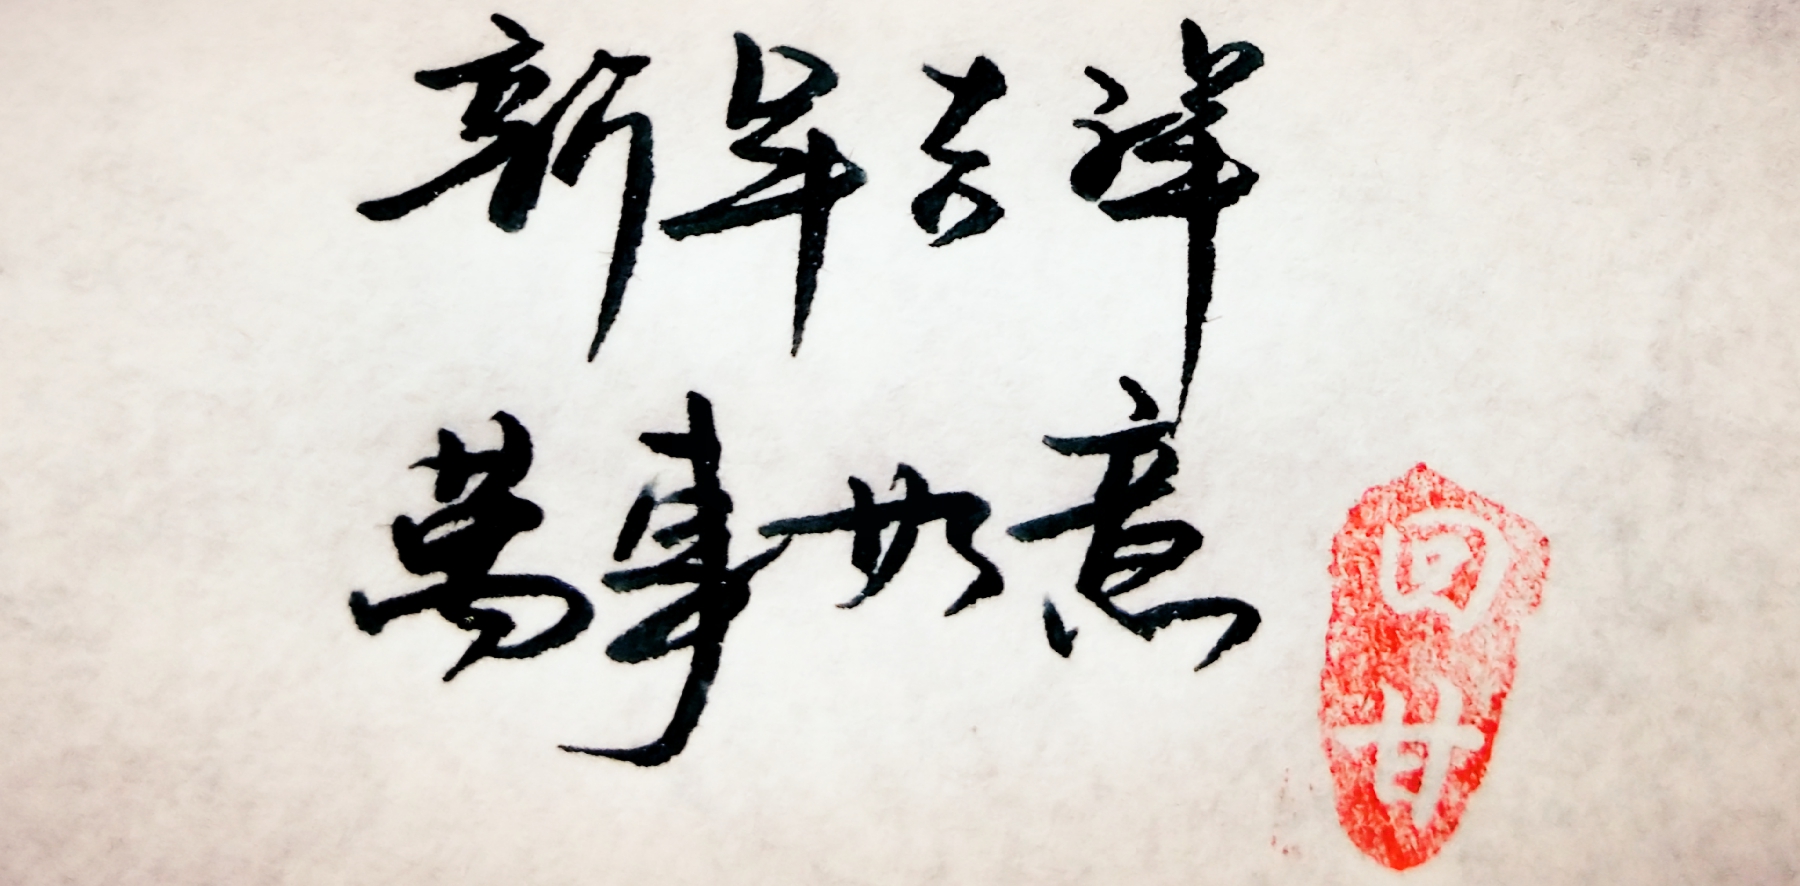 新年吉祥
萬事如意
回甘